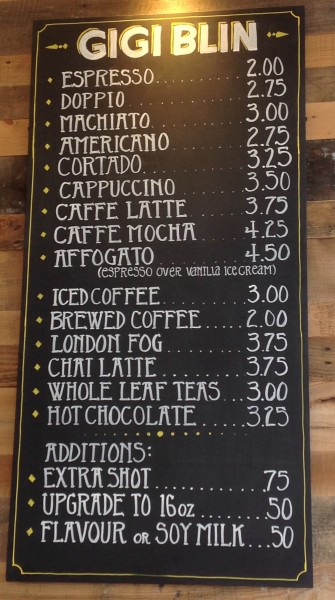 GIGI BLIN
ESPRESSO 2.00
DOPPIO 2.75
MACHIATO 3.00
AMERICANO 2.75
CORTADO 3.25
CAPPUCCINO 3.50
CAFFE LATTE 3.75
CAFFE MOCHA 4.25
AFFOGATO 4.50
(ESPRESSO OVER VANILLA ICE CREAM)
ICED COFFEE 3.00
BREWED COFFEE 2.00
LONDON FOG 3.75
CHAI LATTE 3.75
WHOLE LEAF TEAS 3.00
HOT CHOCOLATE 3.25
ADDITIONS:
EXTRA SHOT .75
UPGRADE TO 16oz .50
FLAVOUR OR SOY MILK .50